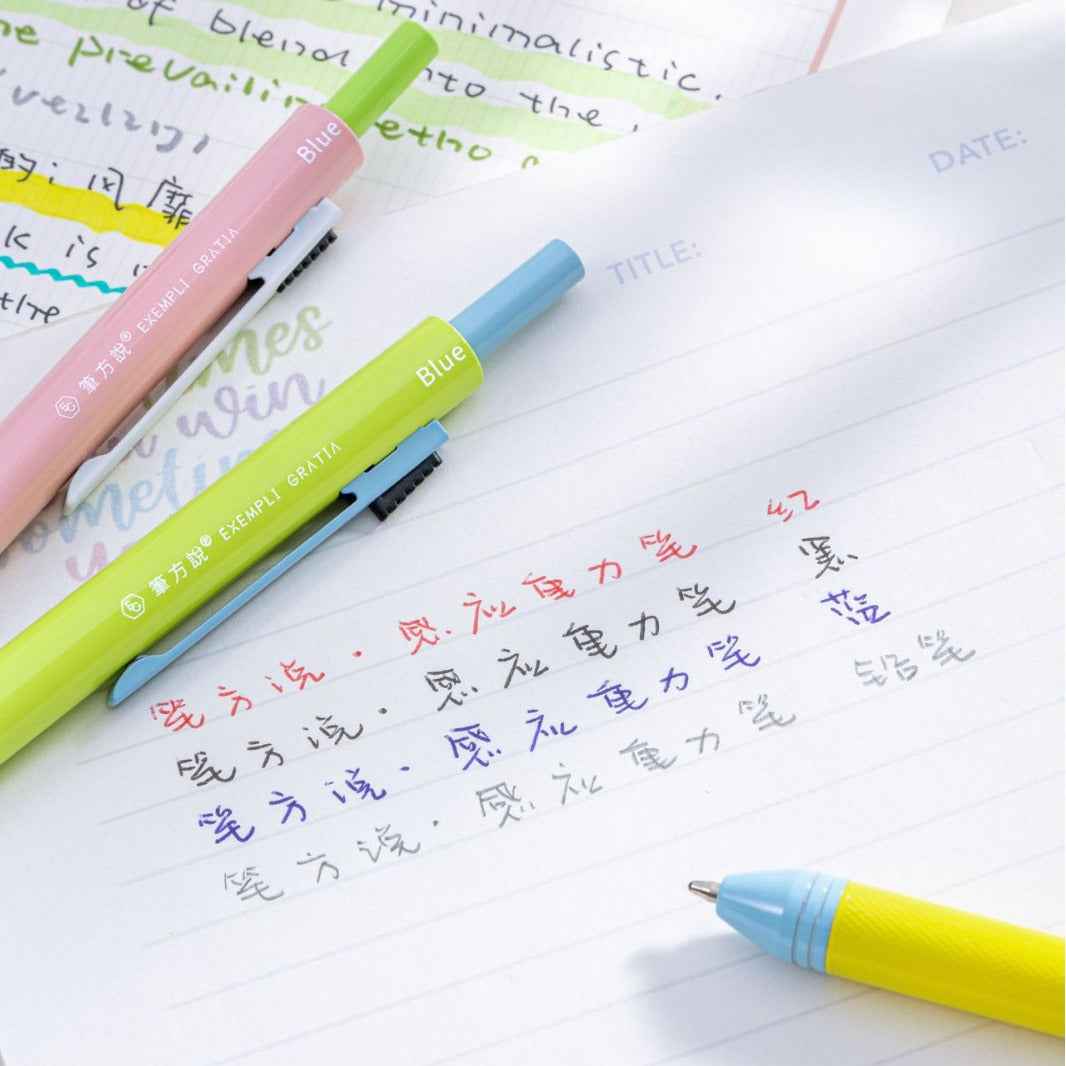 minimalistic.
of blend into the
the prevailing
etho
的；风靡
k is
the
DATE:
TITLE:
Blue
筆方說® EXEMPLI GRATIA
win
Blue
筆方說® EXEMPLI GRATIA
笔方说·感应重力笔 红
笔方说·感应重力笔 黑
笔方说·感应重力笔 蓝
笔方说·感应重力笔 铅笔